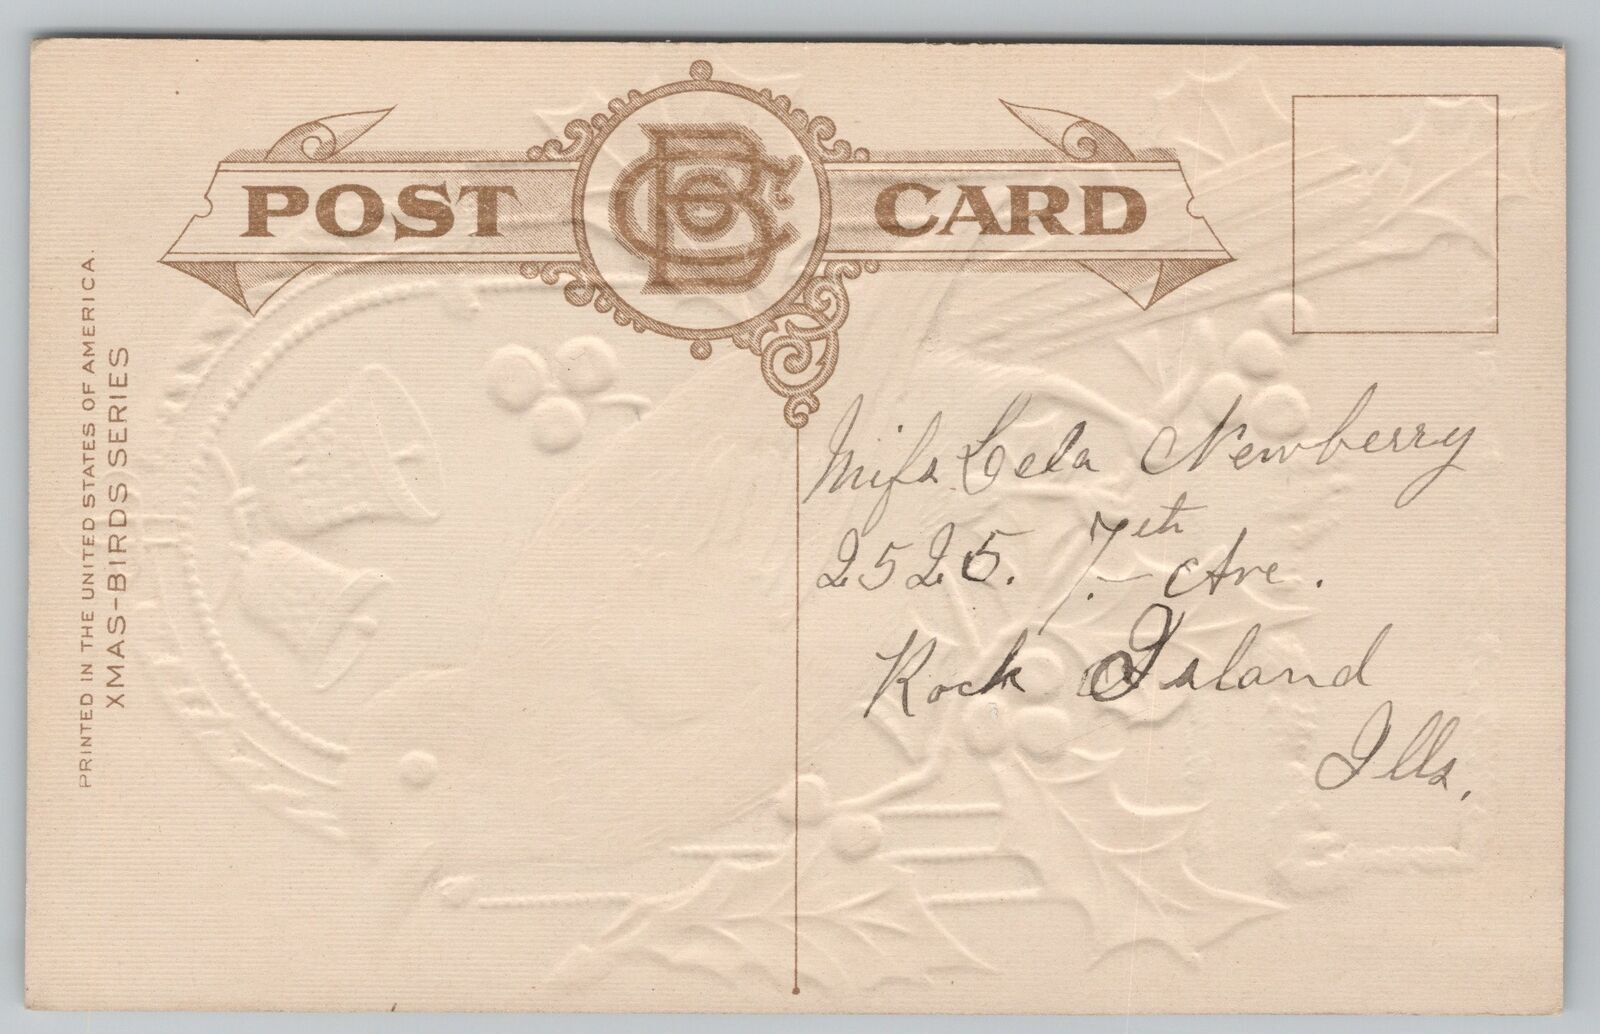 POST CARD
PRINTED IN THE UNITED STATES OF AMERICA.
XMAS-BIRDS SERIES
Miss Lela Newberry
2525. 7th Ave.
Rock Island
Ills.